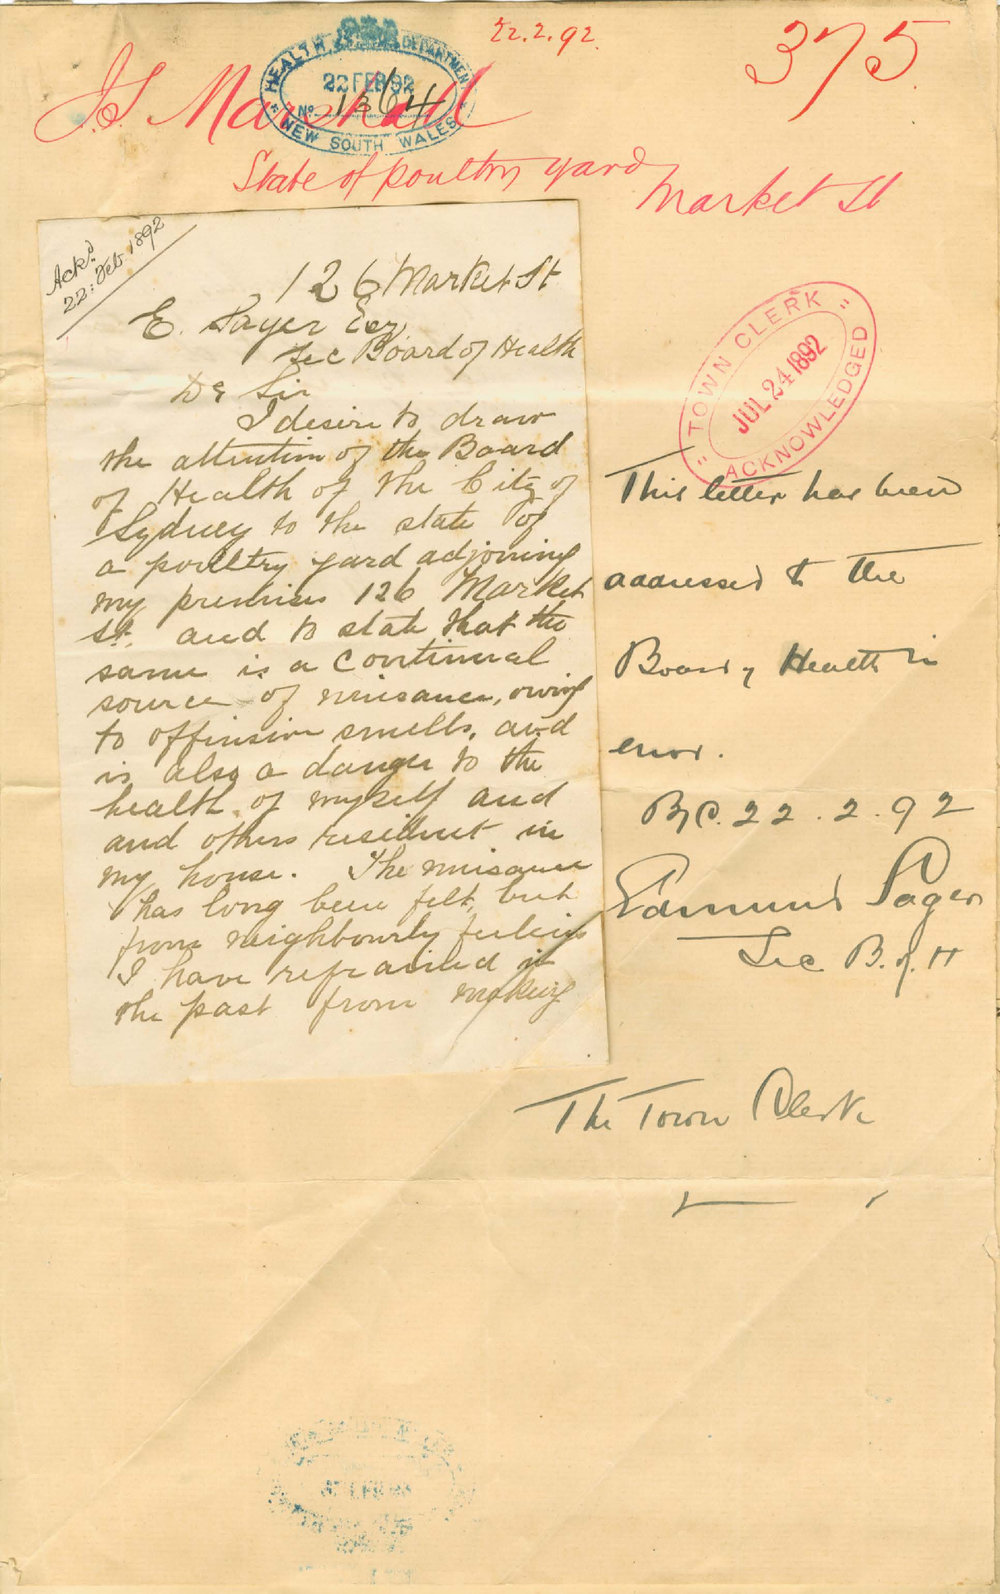 22.2.92.
375
HEALTH DEPARTMENT
22 FEB 92
No 1364
NEW SOUTH WALES
J.S. Marshall
State of poultry yard
Market St
Ackd.
22: Feb. 1892
126 Market St
E. Sager Esq
Sec Board of Health
Dr Sir
I desire to draw
the attention of the Board
of Health of the City of
Sydney to the state of
a poultry yard adjoining
my premises 126 Market
St. and to state that the
same is a continual
source of nuisance, owing
to offensive smells, and
is also a danger to the
health of myself and
and others resident in
my house. The nuisance
has long been felt, but
from neighbourly feelings
I have refrained in
the past from making
"TOWN CLERK"
JUL 24 1892
ACKNOWLEDGED
This letter has been
addressed to the
Board of Health in
error.
B.C. 22.2.92
Edmund Sager
Sec B. of H
The Town Clerk